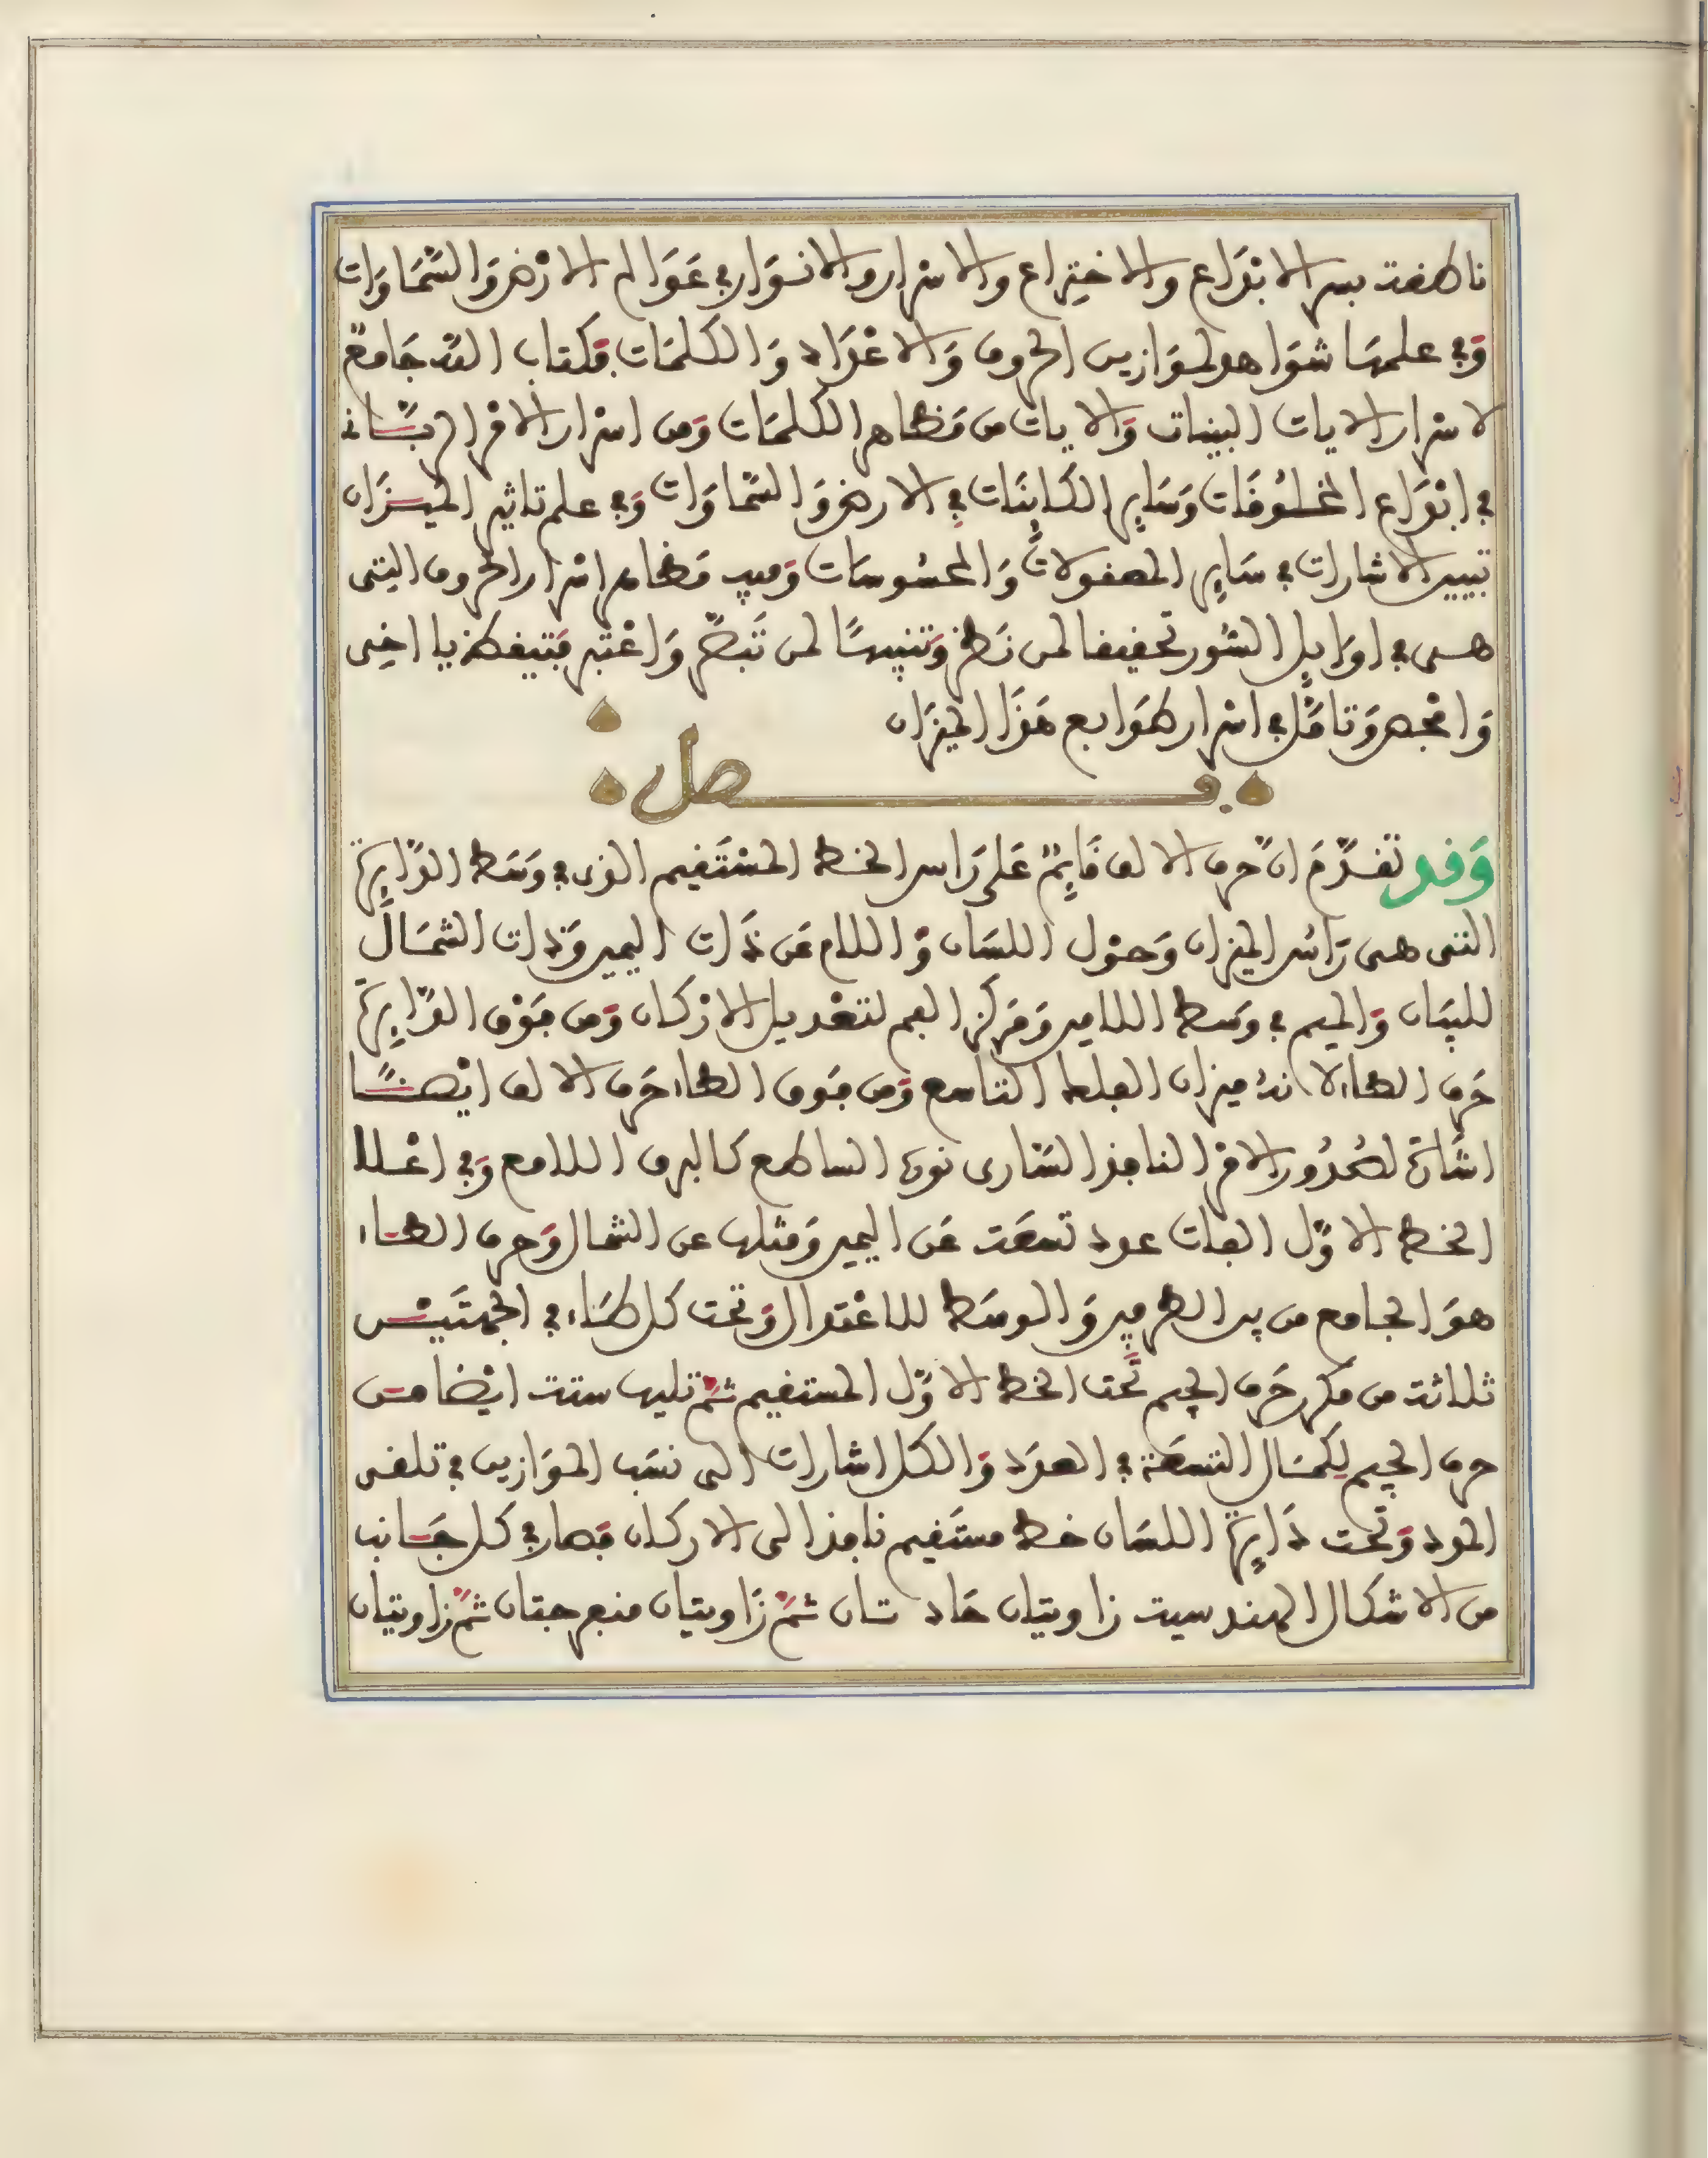 ناطقة بسر الابداع والاختراع والاسرار والانوار في عَوَالم الارْض وَالسَّمَاوَات
وَفي علمها شوَاهد لموَازين الحروف وَالاعْدَاد وَالكلمَات فكتاب الله جَامعٌ
لاسْرار الايات البينات وَالايات من مَظاهر الكلمَات وَمن اسْرار الامْر الربَّاني
في ابْدَاع المخلُوقَات وَسَايِر الكَاينَات في الارض وَالسَّمَاوَات وَفي علم تاثير الميـزَان
تبيين الاشارات في سَايِر المعقولات وَالمحسُوسَات وَفيه مَظاهر اسْرار الحروف التي
هـي في اوَايل السُّور تحقيقا لمن نَظرَ وَتنبيهًا لمن تَبصَّرَ وَاعْتبر فَتيقظ يا اخِي
وَافْحص وَتامَّل في اسْرار طوَابع هَذَا الميزَان
فـصل
وَقد تقدَّمَ انَّ حرف الالف قَايِمٌ عَلى رَاس الخط المسْتَقيم الذي في وَسَط الدَّايِرَة
التي هي رَاسُ الميزان وَحوْل اللسَان وَاللام عَن ذَات اليمين وَذات الشمَال
للسَان وَالميم في وسَط اللامين وَمَركَز الفم لتعْديل الارْكان وَمن فَوْق الدَّايِرَة
حَرف الطاء لانهُ ميزان الفلك التاسع وَمن فَوق الطاء حَرف الالف ايْضـًا
اشَارة لصُدُور الامْر النافذ السَّاري نوره الساطع كالبرق اللامع وَفي اعْـلا
الخط الاوَّل الفات عدد تسعَة عَن اليمين وَمثلها عن الشمال وَحرف الطـاء
هوَ الجامع من بين الطرفين وَالوسَط للاعْتدال وَتحت كل طَاء في الجهتَيْـن
ثلاثة من مكرر حَرف الجيم تَحت الخط الاوَّل المستقيم ثمَّ تليها ستة ايْضا مـن
حرف الجيم لِكمَال التسعَة في العدَد وَالكل اشارات الى نسَب الموَازين في تلقي
المدد وَتحت دَايِرَة اللسَان خط مستَقيم نافذ الى الاركان فَصار في كل جَـانب
من الاشكال الهندسية زاويتان حَادتان ثمَّ زَاويتان منفرجتان ثمَّ زاويتان